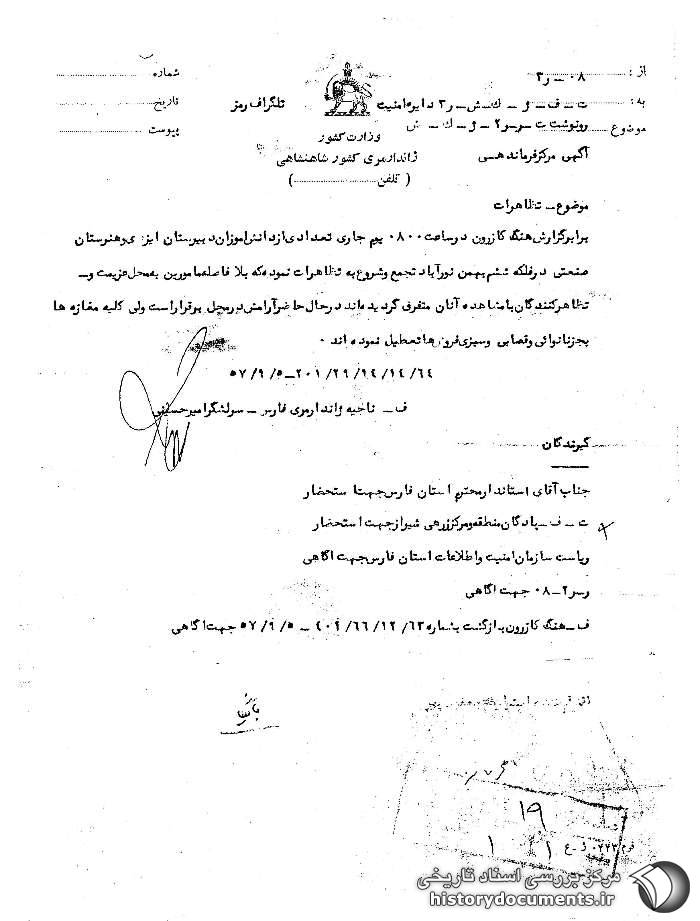 از : ۰۸ - ر۳ شماره
به : ت - ف - ژ - ك - ش - ر۳ دایره امنیت تلگراف رمز تاریخ
موضوع رونوشت ت - ر۲ - ژ - ك - ش پیوست
وزارت کشور
ژاندارمری کشور شاهنشاهی
( تلفن )
آگهی مرکز فرماندهی
موضوع - تظاهرات
برابر گزارش هنگ کازرون در ساعت ۰۸۰۰ یوم جاری تعدادی از دانش اموزان دبیرستان ایزدی و هنرستان
صنعتی در فلکه ششم بهمن نورآباد تجمع و شروع به تظاهرات نموده که بلا فاصله مامورین به محل عزیمت و -
تظاهرکنندگان با مشاهده آنان متفرق گردیده اند در حال حاضر آرامش در محل برقرار است ولی کلیه مغازه ها
بجز نانوائی و قصابی و سبزی فروش ها تعطیل نموده اند ۰
۶۴/ ۱۴/ ۱۴/ ۲۹/ ۲۰۱ - ۵/ ۹/ ۵۷
ف - ناحیه ژاندارمری فارس - سرلشگر امیرحسینی
گیرندگان
جناب آقای استاندار محترم استان فارس جهت استحضار
ت - ف - پادگان منطقه و مرکز زرهی شیراز جهت استحضار
ریاست سازمان امنیت و اطلاعات استان فارس جهت اگاهی
ر۲ - ۰۸ جهت اگاهی
ف - هنگ کازرون بازگشت بشماره ۶۳/ ۱۲/ ۶۶/ ۴۰۹ - ۵/ ۹/ ۵۷ جهت اگاهی
۱۹
مرکز بررسی اسناد تاریخی
historydocuments.ir